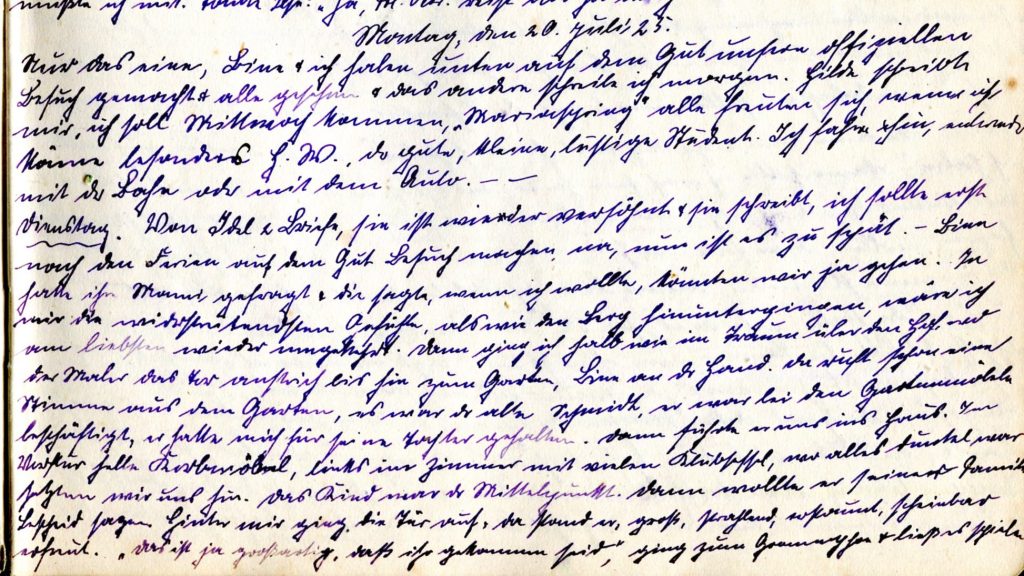 Montag, den 20. Juli 25.
Nur das eine, Bine & ich haben unten auf dem Gut unsern offiziellen
Besuch gemacht & alle gesehen & das andere schreibe ich morgen. Hilde schreibt
mir, ich soll Mittwoch kommen, „Mariaspring" alle freuten sich, wenn ich
käme besonders H. W., de gute, kleine, lustige Student. Ich fahre hin, entweder
mit de Bahn ode mit dem Auto. – –
Dienstag. Von Idel 2 Briefe, sie ist wieder versöhnt & sie schreibt, ich sollte erst
nach den Ferien auf dem Gut Besuch machen, na, nun ist es zu spät. – Bine
hatte ihre Mami gefragt & die sagte, wenn ich wollte, könnten wir ja gehen. In
mir die widerstreitendsten Gefühle, als wir den Berg hinuntergingen, wäre ich
am liebsten wieder umgekehrt. Dann ging ich halb wie im Traum über den Hof, wo
der Maler das Tor anstrich bis hin zum Garten, Bine an de Hand. Da ruft schon eine
Stimme aus dem Garten, es war de alte Schmidt, er war bei den Gartenmöbeln
beschäftigt, er hatte mich für seine Tochter gehalten. Dann führte er uns ins Haus. Im
Vestibür helle Korbmöbel, links ins Zimmer mit vielen Klubsessel, wo alles dunkel war
setzten wir uns hin. Das Kind war de Mittelpunkt. Dann wollte er seiner Familie
Bescheid sagen. Hinter mir ging die Tür auf, da stand er, groß, strahlend, erstaunt, scheinbar
erfreut. „Das ist ja großartig, daß ihr gekommen seid", ging zum Grammophon & ließ es spielen